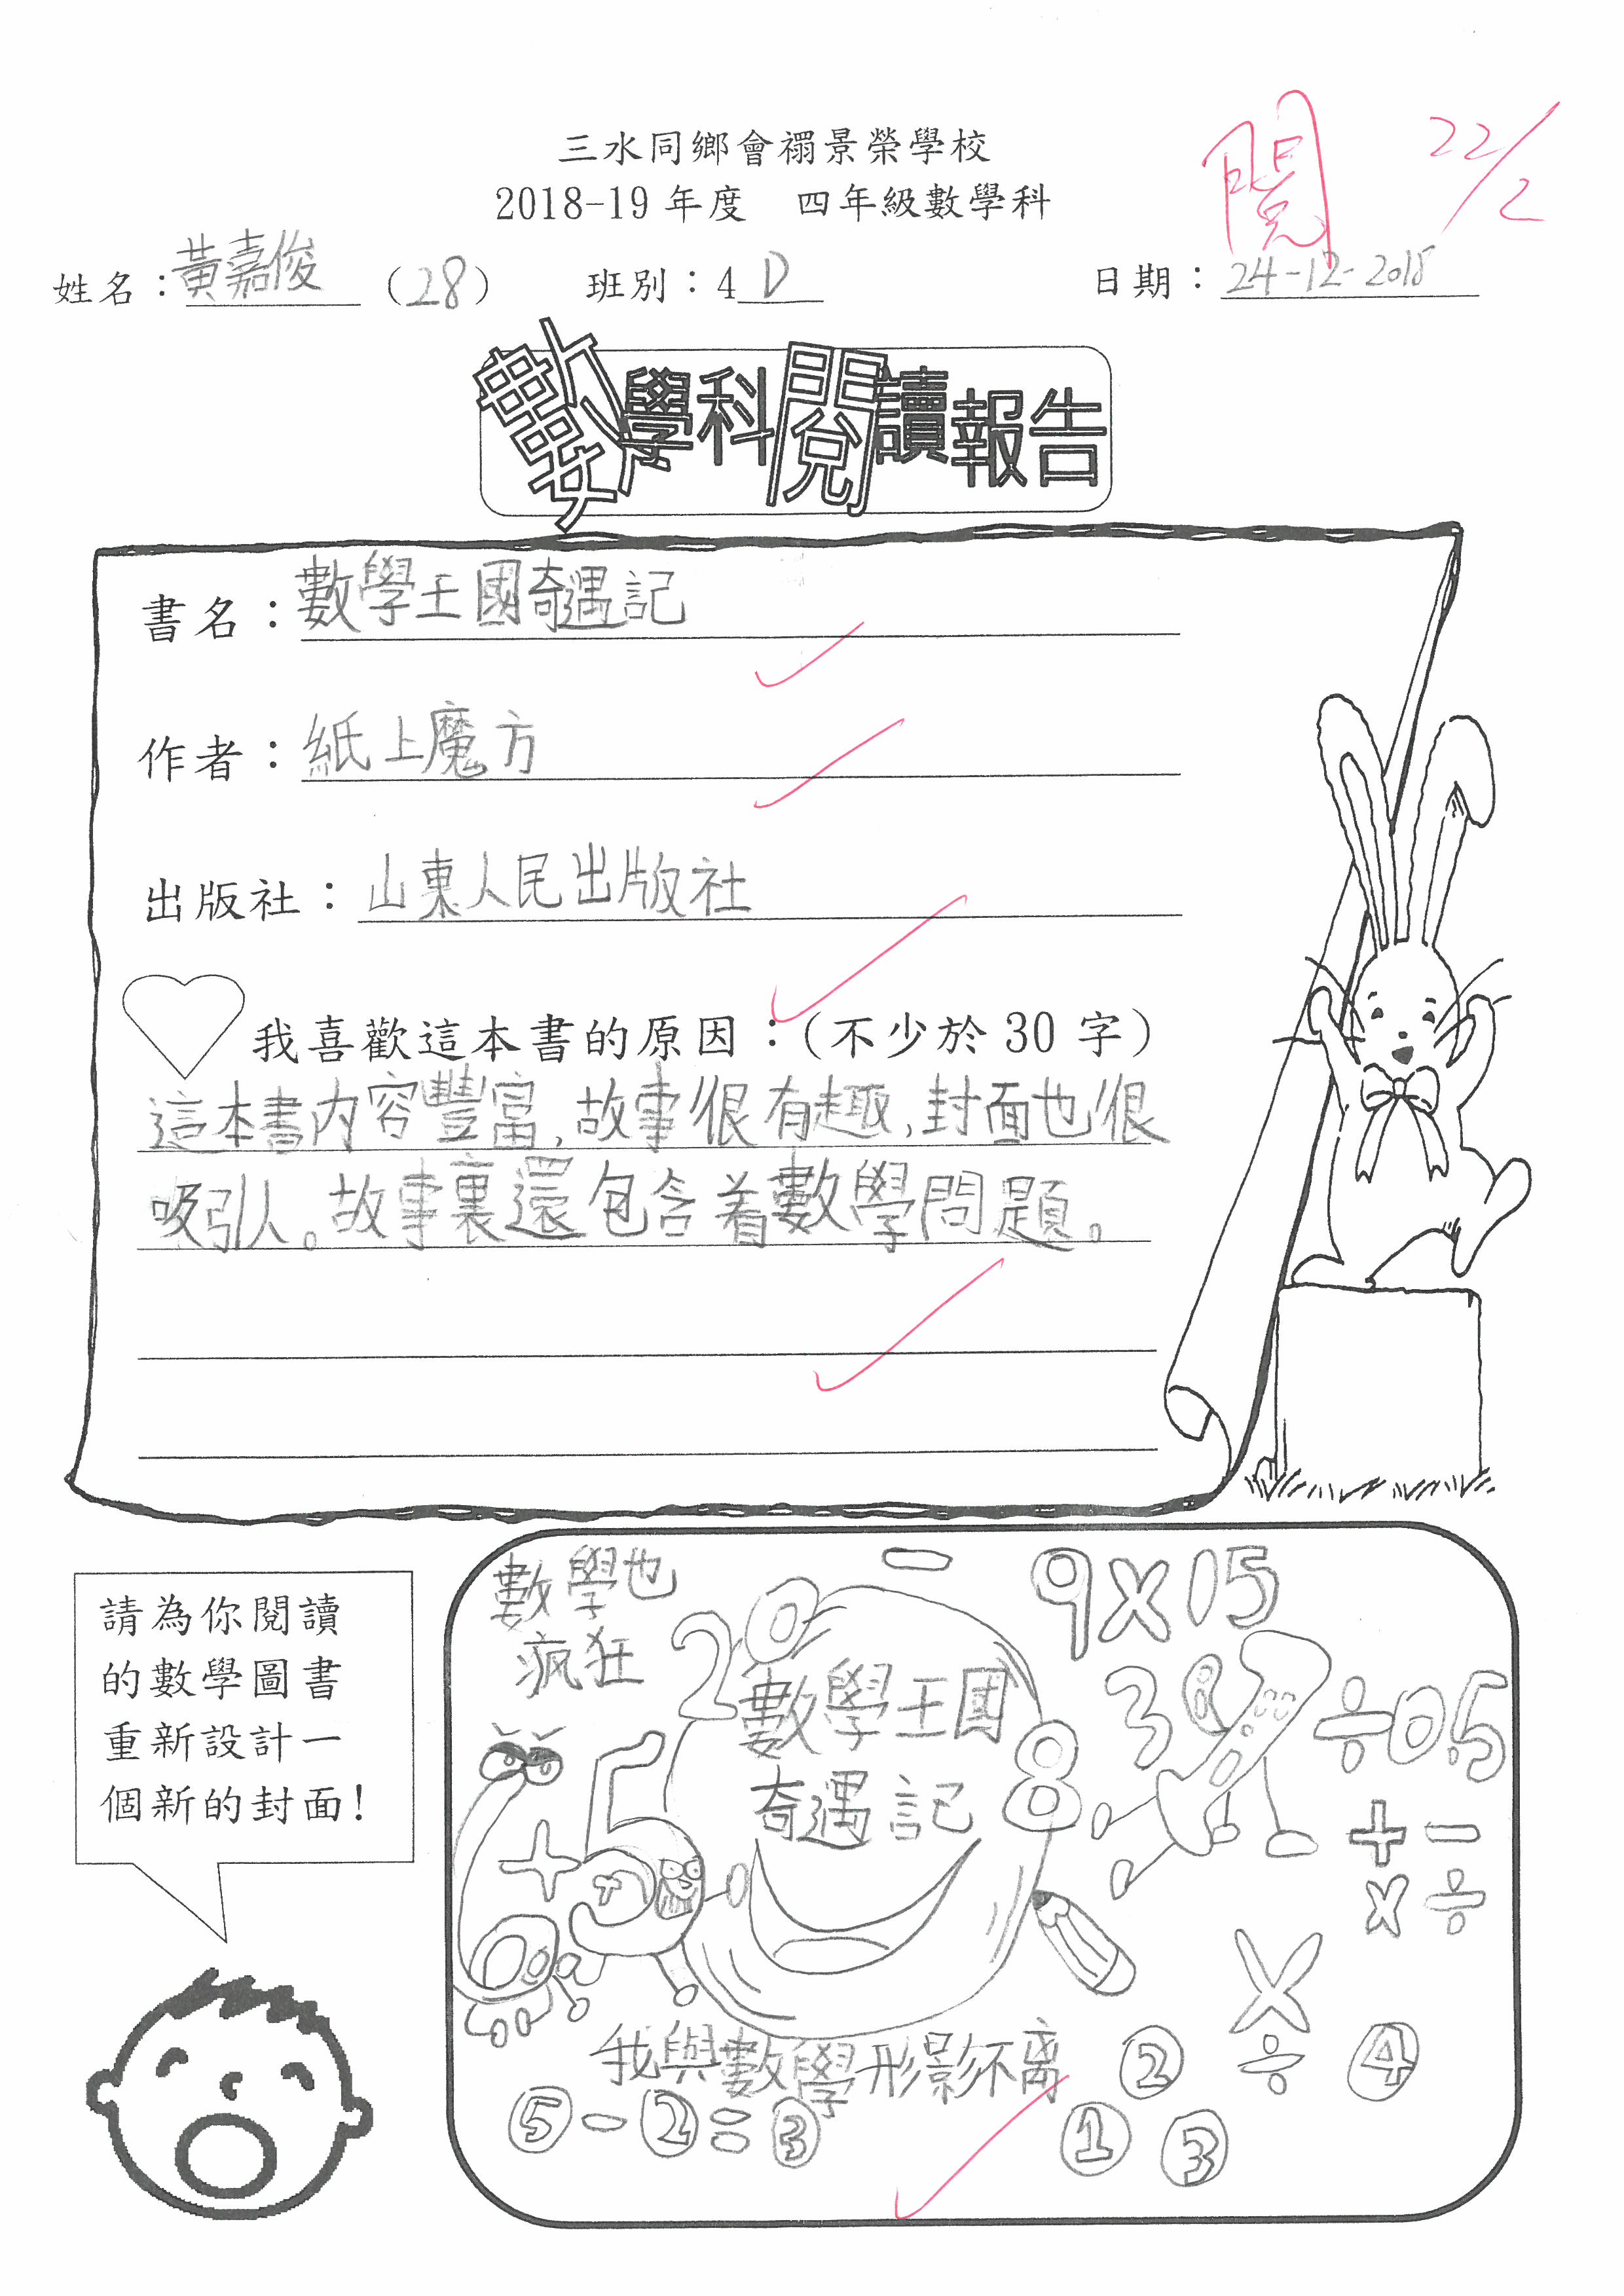 三水同鄉會禤景榮學校
2018-19 年度 四年級數學科
閱 22/2
姓名：黃嘉俊 (28) 班別：4 D 日期：24-12-2018
數學科閱讀報告
書名：數學王國奇遇記
作者：紙上魔方
出版社：山東人民出版社
我喜歡這本書的原因：(不少於 30 字)
這本書內容豐富,故事很有趣,封面也很
吸引人。故事裏還包含着數學問題。
請為你閱讀
的數學圖書
重新設計一
個新的封面!
數學也
瘋狂
- 9×15
20
數學王國
奇遇記
+5
8
3
÷0.5
+ -
× ÷
我與數學形影不离
×
÷
② ④
⑤-②=③
① ③